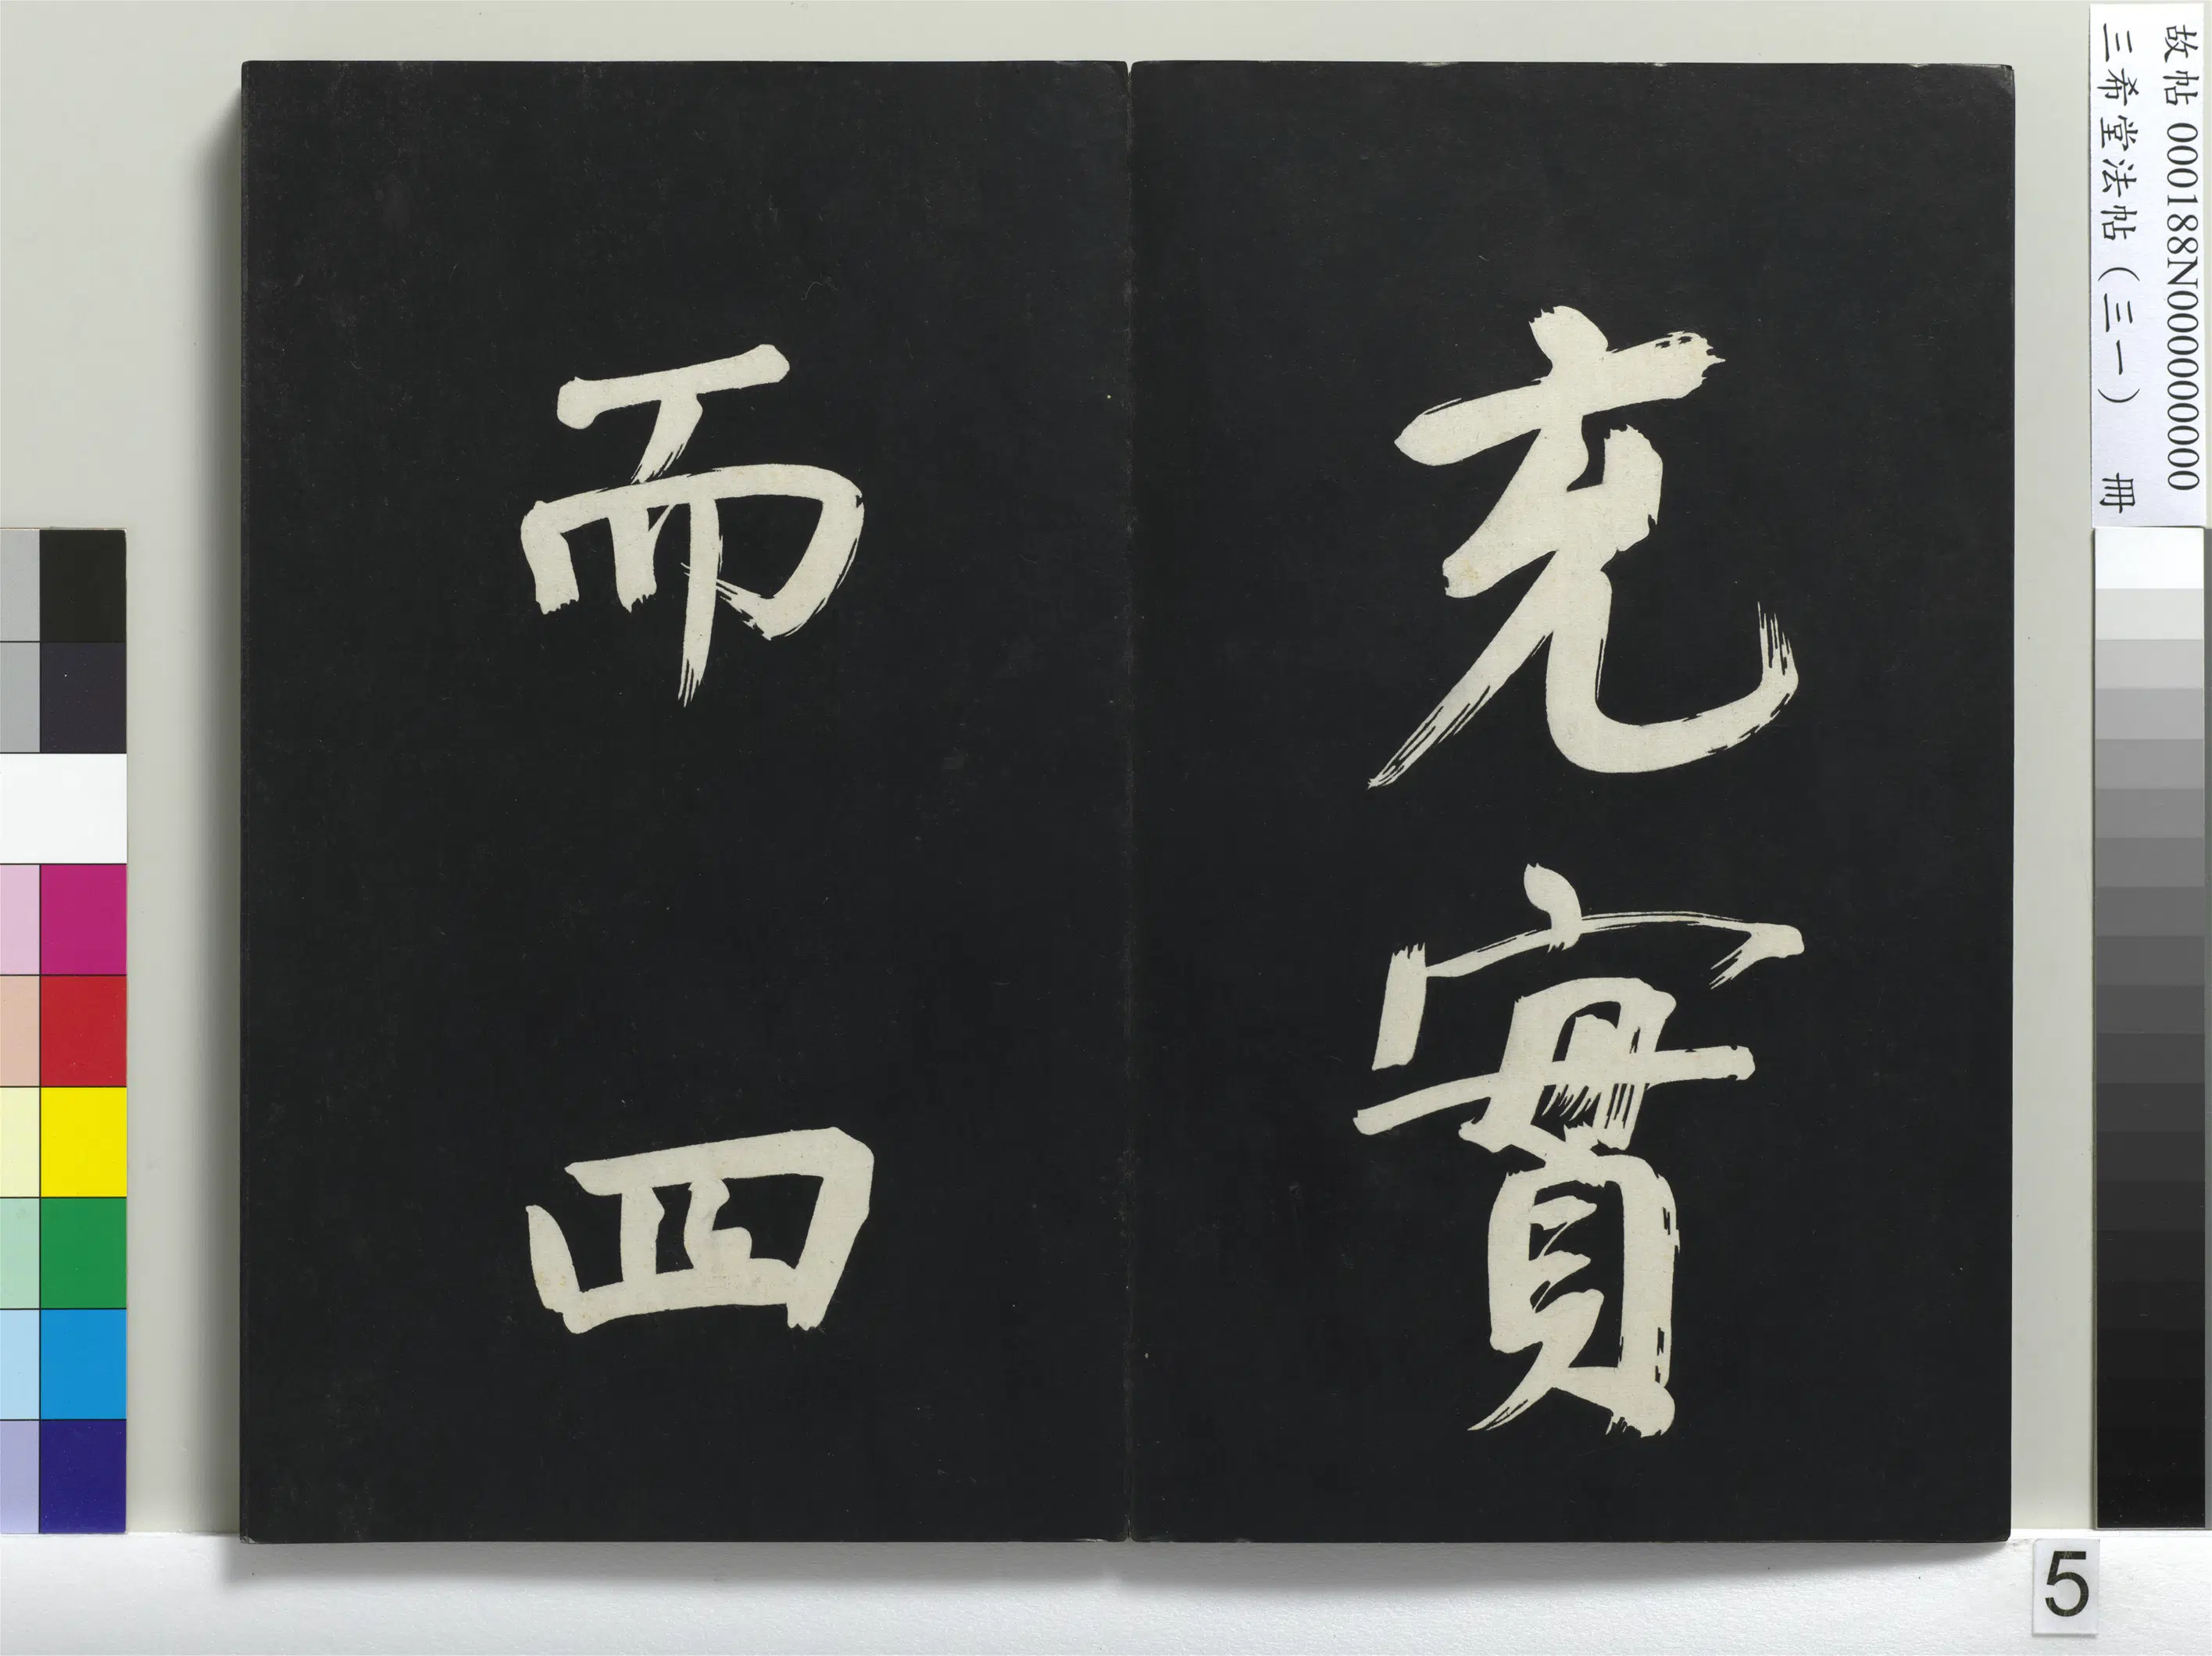 充實
而四
故帖 000188N000000000
三希堂法帖（三一） 冊
5